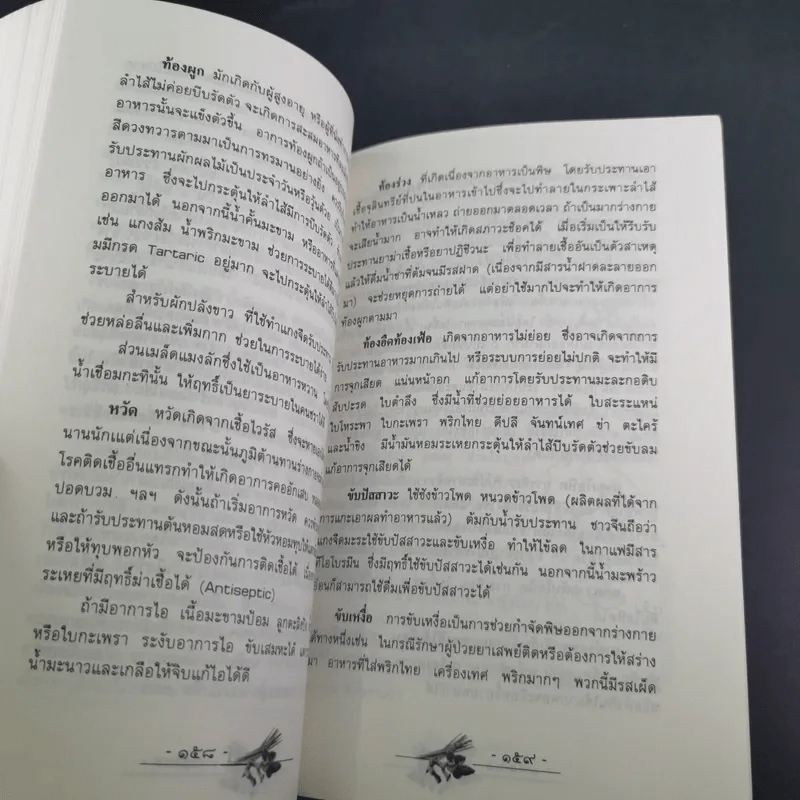 ท้องผูก มักเกิดกับผู้สูงอายุ หรือผู้ที่
ลำไส้ไม่ค่อยบีบรัดตัว จะเกิดการสะสมอาหาร
อาหารนั้นจะแข็งตัวขึ้น อาการท้องผูก
สีดวงทวารตามมาเป็นการทรมานอย่างยิ่ง
รับประทานผักผลไม้เป็นประจำวันหรือวุ้นด้วย
อาหาร ซึ่งจะไปกระตุ้นให้ลำไส้มีการบีบรัดตัว
ออกมาได้ นอกจากนี้น้ำคั้นมะขาม หรืออาหาร
เช่น แกงส้ม น้ำพริกมะขาม ช่วยการระบายได้
มมีกรด Tartaric อยู่มาก จะไปกระตุ้นให้ลำไส้
ระบายได้
สำหรับผักปลังขาว ที่ใช้ทำแกงจืดรับประทาน
ช่วยหล่อลื่นและเพิ่มกาก ช่วยในการระบายได้
ส่วนเมล็ดแมงลักซึ่งใช้เป็นอาหารหวาน
น้ำเชื่อมกะทินั้น ให้ฤทธิ์เป็นยาระบายในคนชรา
หวัด หวัดเกิดจากเชื้อไวรัส ซึ่งจะหาย
นานนักแต่เนื่องจากขณะนั้นภูมิต้านทานร่างกาย
โรคติดเชื้ออื่นแทรกทำให้เกิดอาการคออักเสบ
ปอดบวม ฯลฯ ดังนั้นถ้าเริ่มอาการหวัด
และถ้ารับประทานต้นหอมสดหรือใช้หัวหอมทุบ
หรือให้ทุบพอกหัว จะป้องกันการติดเชื้อได้
ระเหยที่มีฤทธิ์ฆ่าเชื้อได้ (Antiseptic)
ถ้ามีอาการไอ เนื้อมะขามป้อม
หรือใบกะเพรา ระงับอาการไอ ขับเสมหะได้
น้ำมะนาวและเกลือให้จิบแก้ไอได้ดี
- ๑๕๘ -
ท้องร่วง ที่เกิดเนื่องจากอาหารเป็นพิษ โดยรับประทานเอา
เชื้อจุลินทรีย์ที่ปนในอาหารเข้าไปซึ่งจะไปทำลายในกระเพาะลำไส้
ทำให้อาหารเป็นน้ำเหลว ถ่ายออกมาตลอดเวลา ถ้าเป็นมากร่างกาย
จะเสียน้ำมาก อาจทำให้เกิดสภาวะช็อคได้ เมื่อเริ่มเป็นให้รีบรับ
ประทานยาฆ่าเชื้อหรือยาปฏิชีวนะ เพื่อทำลายเชื้ออันเป็นตัวสาเหตุ
แล้วให้ดื่มน้ำชาที่ต้มจนมีรสฝาด (เนื่องจากมีสารน้ำฝาดละลายออก
มา) จะช่วยหยุดการถ่ายได้ แต่อย่าใช้มากไปจะทำให้เกิดอาการ
ท้องผูกตามมา
ท้องอืดท้องเฟ้อ เกิดจากอาหารไม่ย่อย ซึ่งอาจเกิดจากการ
รับประทานอาหารมากเกินไป หรือระบบการย่อยไม่ปกติ จะทำให้มี
การจุกเสียด แน่นหน้าอก แก้อาการโดยรับประทานมะละกอดิบ
สับปะรด ใบตำลึง ซึ่งมีน้ำที่ช่วยย่อยอาหารได้ ใบสะระแหน่
ใบโหระพา ใบกะเพรา พริกไทย ดีปลี จันทน์เทศ ข่า ตะไคร้
และน้ำขิง มีน้ำมันหอมระเหยกระตุ้นให้ลำไส้บีบรัดตัวช่วยขับลม
แก้อาการจุกเสียดได้
ขับปัสสาวะ ใช้ซังข้าวโพด หนวดข้าวโพด (ผลิตผลที่ได้จาก
การแกะเอาผลทำอาหารแล้ว) ต้มกับน้ำรับประทาน ชาวจีนถือว่า
แกงจืดมะระใช้ขับปัสสาวะและขับเหงื่อ ทำให้ไข้ลด ในกาแฟมีสาร
ทีโอโบรมีน ซึ่งมีฤทธิ์ใช้ขับปัสสาวะได้เช่นกัน นอกจากนี้น้ำมะพร้าว
อ่อนก็สามารถใช้ดื่มเพื่อขับปัสสาวะได้
ขับเหงื่อ การขับเหงื่อเป็นการช่วยกำจัดพิษออกจากร่างกาย
ได้ทางหนึ่งเช่น ในกรณีรักษาผู้ป่วยยาเสพย์ติดหรือต้องการให้สร่าง
มา อาหารที่ใส่พริกไทย เครื่องเทศ พริกมากๆ พวกนี้มีรสเผ็ด
- ๑๕๙ -